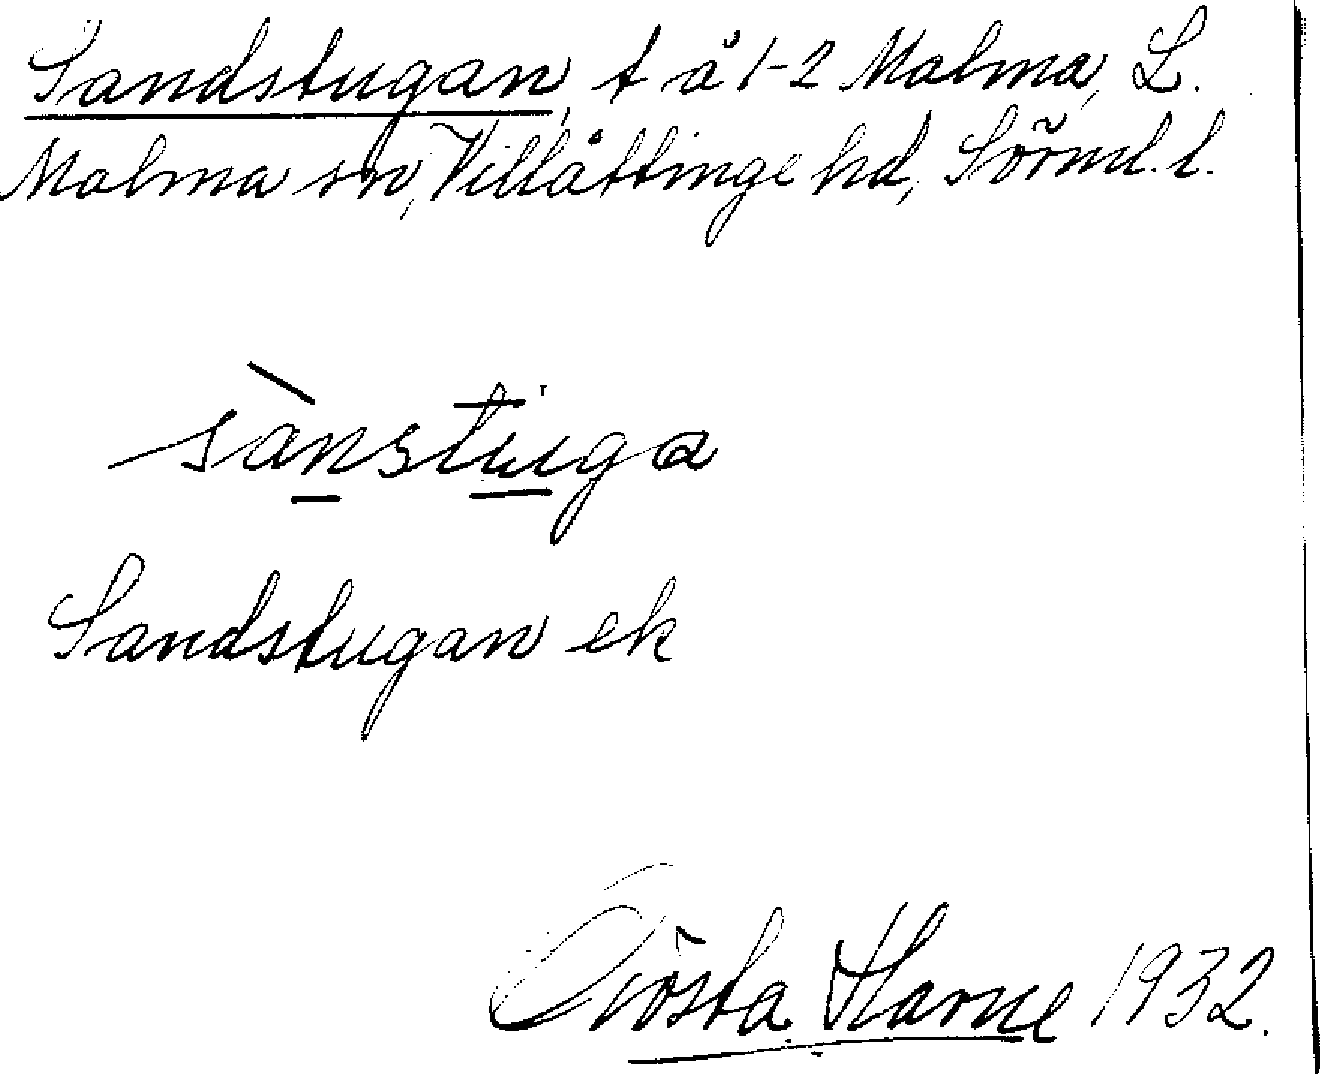 Sandstugan, t å 1-2 Malma, L.
Malma sn, Villåttinge hd, Sörml. l.
sànstuga
Sandstugan ek
Gösta Harne 1932.